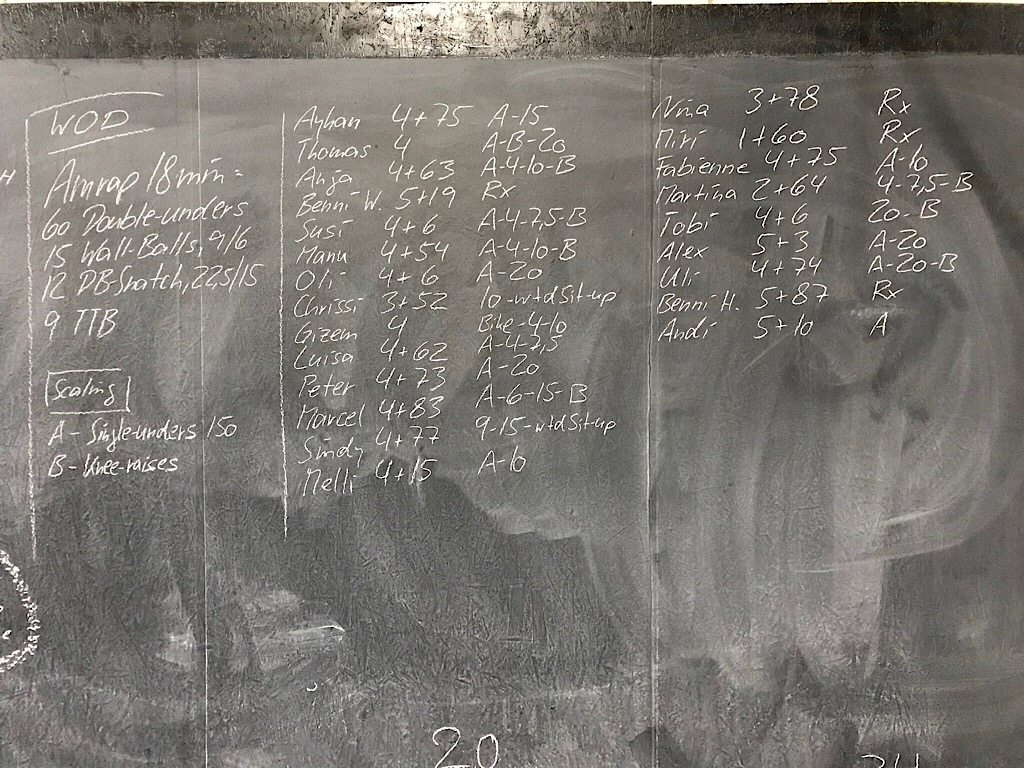 WOD
Amrap 18min:
60 Double-unders
15 Wall-Balls, 9/6
12 DB-Snatch, 22,5/15
9 TTB
Scaling
A - Single-unders 150
B - Knee-raises
Ayhan 4+75 A-15
Thomas 4 A-B-20
Anja 4+63 A-4-10-B
Benni W. 5+19 Rx
Susi 4+6 A-4-7,5-B
Manu 4+54 A-4-10-B
Oli 4+6 A-20
Chrissi 3+52 10-wtdSit-up
Gizem 4 Bike-4-10
Luisa 4+62 A-4-7,5
Peter 4+73 A-20
Marcel 4+83 A-6-15-B
Sindy 4+77 9-15-wtdSit-up
Melli 4+15 A-10
Nina 3+78 Rx
Miri 1+60 Rx
Fabienne 4+75 A-10
Martina 2+64 4-7,5-B
Tobi 4+6 20-B
Alex 5+3 A-20
Uli 4+74 A-20-B
Benni H. 5+87 Rx
Andi 5+10 A
20